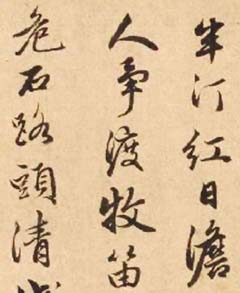 半汀紅日澹
人爭渡牧笛
危石路頭清